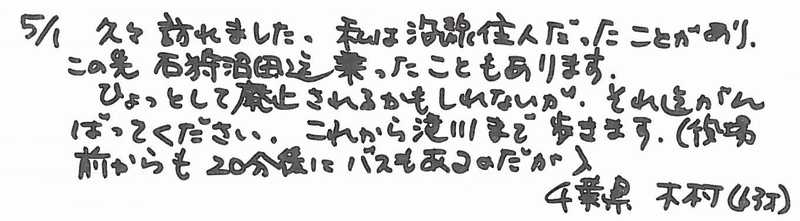 5/1 久々訪れました。私は沿線住人だったことがあり、
この先 石狩沼田迄 乗ったこともあります。
ひょっとして廃止されるかもしれないが、それ迄がん
ばってください。これから滝川まで歩きます。(役場
前からも20分後にバスもあるのだが)
千葉県 木村(63才)